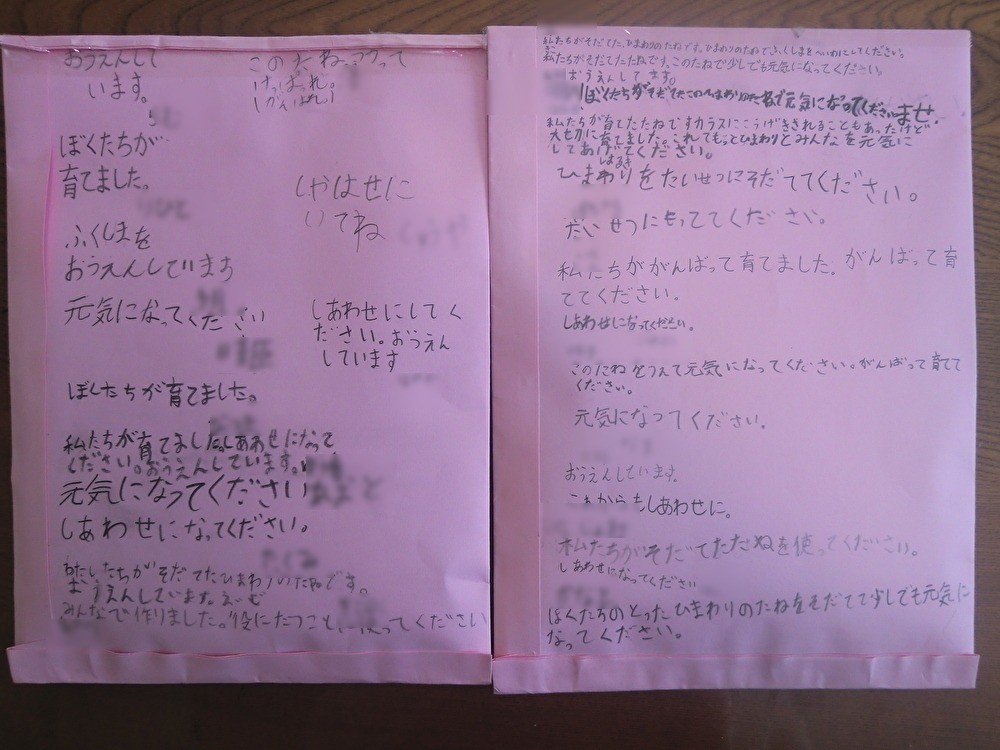 おうえんして
います。
このたね
けっぱれ。
(がんばれ)
ぼくたちが
育てました。
しやはせに
いてね
ふくしまを
おうえんしています
元気になってください
しあわせにしてく
ださい。おうえん
しています
ぼくたちが育てました。
私たちが育てました。しあわせになって
ください。おうえんしています。
元気になってください
しあわせになってください。
わたしたちがそだてたひまわりのたねです。
おうえんしています。
みんなで作りました。役にたつこと使ってください
私たちがそだてた、ひまわりのたねです。ひまわりのたねで、ふくしまをへいわにしてください。
私たちがそだてたたねです。このたねで少しでも元気になってください。
おうえんしてます。
ぼくたちがそだてたこのひまわりのたねで元気になってくださいませ.
私たちが育てたたねですカラスにこうげきされることもあったけど
大切に育てました。これでもっとひまわりとみんなを元気に
してあげてください。
はるき
ひまわりをたいせつにそだててください。
だいせつにもっててください。
私たちががんばって育てました。がんばって育
ててください。
しあわせになってください。
このたねをうえて元気になってください。がんばって育てて
ください。
元気になってください.
おうえんしています。
これからもしあわせに。
私たちがそだてたたねを使ってください。
しあわせになってください
ぼくたちのとったひまわりのたねをそだてて少しでも元気に
なってください。